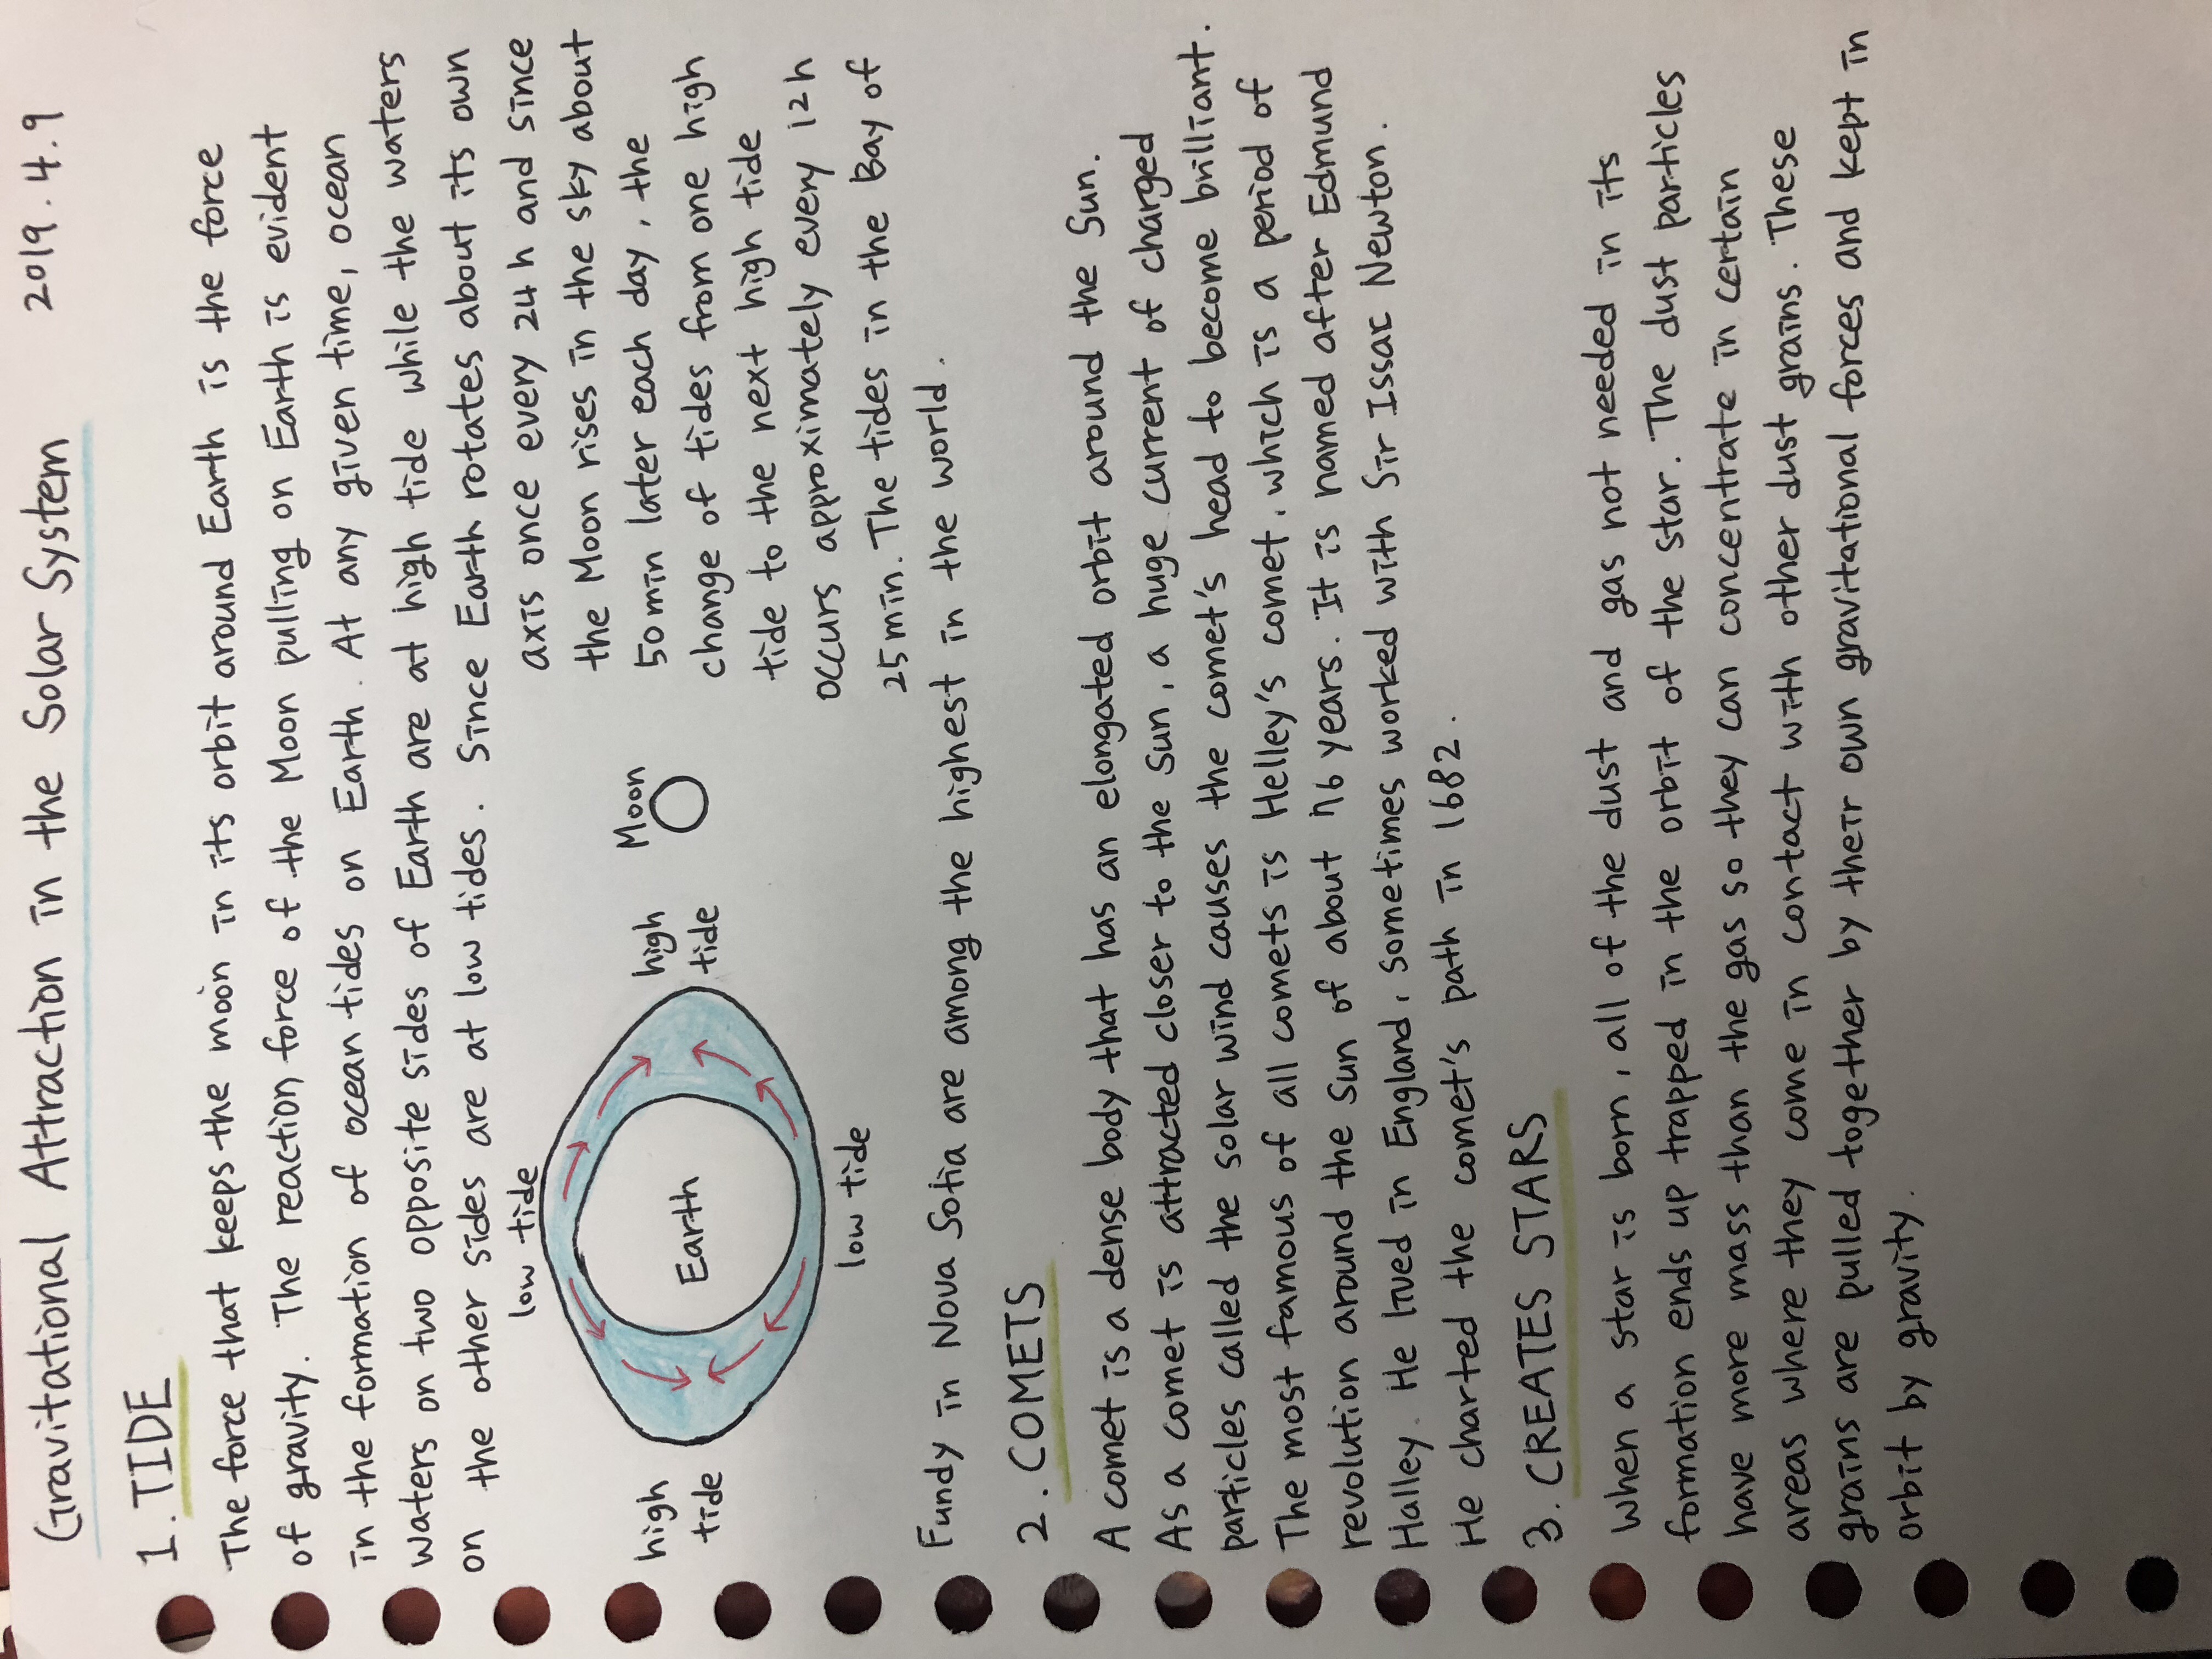 Gravitational Attraction in the Solar System 2019.4.9
1. TIDE
The force that keeps the moon in its orbit around Earth is the force
of gravity. The reaction force of the Moon pulling on Earth is evident
in the formation of ocean tides on Earth. At any given time, ocean
waters on two opposite sides of Earth are at high tide while the waters
on the other sides are at low tides. Since Earth rotates about its own
axis once every 24 h and since
the Moon rises in the sky about
50 min later each day, the
change of tides from one high
tide to the next high tide
occurs approximately every 12 h
25 min. The tides in the Bay of
low tide
high
tide
Earth
high
tide
Moon
low tide
Fundy in Nova Sotia are among the highest in the world.
2. COMETS
A comet is a dense body that has an elongated orbit around the Sun.
As a comet is attracted closer to the Sun, a huge current of charged
particles called the solar wind causes the comet's head to become brilliant.
The most famous of all comets is Helley's comet, which is a period of
revolution around the Sun of about 76 years. It is named after Edmund
Halley. He lived in England, sometimes worked with Sir Issac Newton.
He charted the comet's path in 1682.
3. CREATES STARS
When a star is born, all of the dust and gas not needed in its
formation ends up trapped in the orbit of the star. The dust particles
have more mass than the gas so they can concentrate in certain
areas where they come in contact with other dust grains. These
grains are pulled together by their own gravitational forces and kept in
orbit by gravity.